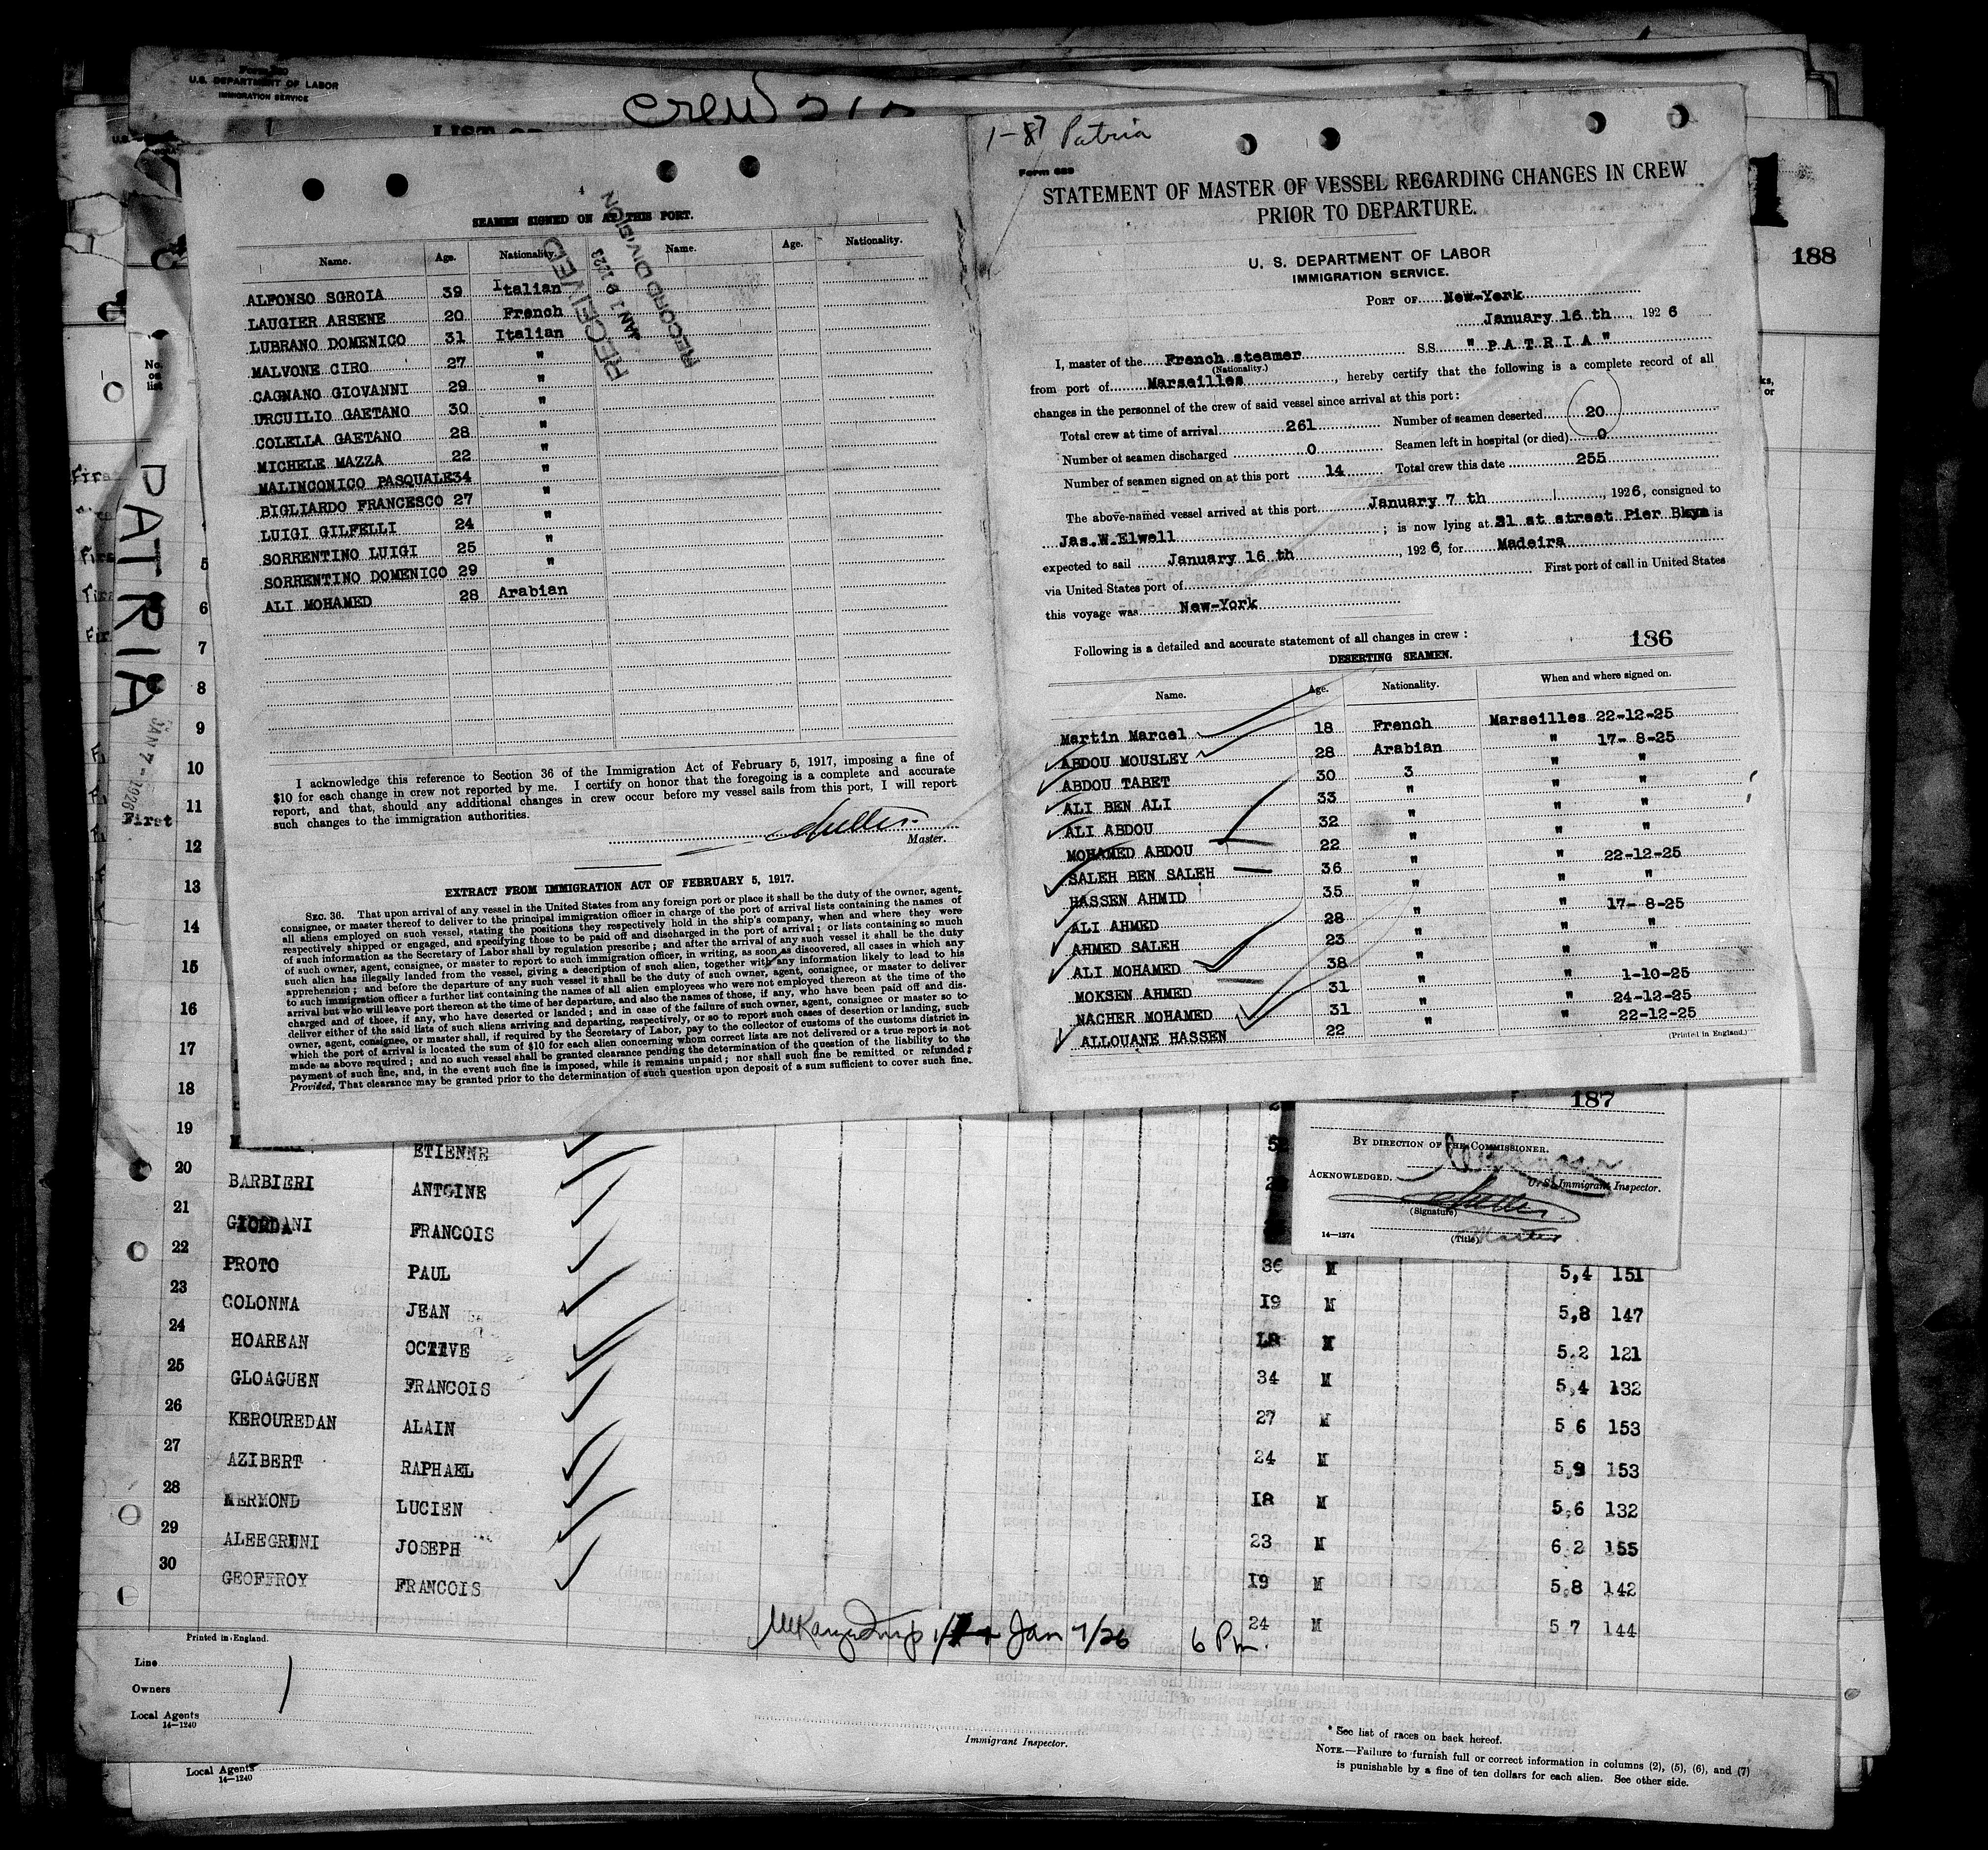 U.S. DEPARTMENT OF LABOR
IMMIGRATION SERVICE
crew
188
1
PATRIA
JAN 7 - 1926
First
No. on list
SEAMEN SIGNED ON AT THIS PORT.
Name. Age. Nationality. Name. Age. Nationality.
RECEIVED
RECORD DIVISION
ALFONSO SGROIA 39 Italian
LAUGIER ARSENE 20 French
LUBRANO DOMENICO 31 Italian
MALVONE CIRO 27 "
CAGNANO GIOVANNI 29 "
URCUILIO GAETANO 30 "
COLELLA GAETANO 28 "
MICHELE MAZZA 22 "
MALINCONICO PASQUALE 34 "
BIGLIARDO FRANCESCO 27 "
LUIGI GILFELLI 24 "
SORRENTINO LUIGI 25 "
SORRENTINO DOMENICO 29 "
ALI MOHAMED 28 Arabian
I acknowledge this reference to Section 36 of the Immigration Act of February 5, 1917, imposing a fine of
$10 for each change in crew not reported by me. I certify on honor that the foregoing is a complete and accurate
report, and that, should any additional changes in crew occur before my vessel sails from this port, I will report
such changes to the immigration authorities.
Master.
EXTRACT FROM IMMIGRATION ACT OF FEBRUARY 5, 1917.
SEC. 36. That upon arrival of any vessel in the United States from any foreign port or place it shall be the duty of the owner, agent,
consignee, or master thereof to deliver to the principal immigration officer in charge of the port of arrival lists containing the names of
all aliens employed on such vessel, stating the positions they respectively hold in the ship's company, when and where they were
respectively shipped or engaged, and specifying those to be paid off and discharged in the port of arrival; or lists containing so much
of such information as the Secretary of Labor shall by regulation prescribe; and after the arrival of any such vessel it shall be the duty
of such owner, agent, consignee, or master to report to such immigration officer, in writing, as soon as discovered, all cases in which any
such alien has illegally landed from the vessel, giving a description of such alien, together with any information likely to lead to his
apprehension; and before the departure of any such vessel it shall be the duty of such owner, agent, consignee, or master to deliver
to such immigration officer a further list containing the names of all alien employees who were not employed thereon at the time of the
arrival but who will leave port thereon at the time of her departure, and also the names of those, if any, who have been paid off and dis-
charged and of those, if any, who have deserted or landed; and in case of the failure of such owner, agent, consignee or master so to
deliver either of the said lists of such aliens arriving and departing, respectively, or so to report such cases of desertion or landing, such
owner, agent, consignee, or master, shall, if required by the Secretary of Labor, pay to the collector of customs of the customs district in
which the port of arrival is located the sum of $10 for each alien concerning whom correct lists are not delivered or a true report is not
made as above required; and no such vessel shall be granted clearance pending the determination of the question of the liability to the
payment of such fine, and, in the event such fine is imposed, while it remains unpaid; nor shall such fine be remitted or refunded;
Provided, That clearance may be granted prior to the determination of such question upon deposit of a sum sufficient to cover such fine.
1-87 Patria
Form 689
STATEMENT OF MASTER OF VESSEL REGARDING CHANGES IN CREW
PRIOR TO DEPARTURE.
U. S. DEPARTMENT OF LABOR
IMMIGRATION SERVICE.
PORT OF New-York
January 16 th, 1926
I, master of the French steamer S.S. " P A T R I A "
(Nationality.)
from port of Marseilles, hereby certify that the following is a complete record of all
changes in the personnel of the crew of said vessel since arrival at this port:
Total crew at time of arrival 261 Number of seamen deserted 20
Number of seamen discharged 0 Seamen left in hospital (or died) 0
Number of seamen signed on at this port 14 Total crew this date 255
The above-named vessel arrived at this port January 7 th, 1926, consigned to
Jas.W.Elwell; is now lying at 31 st street Pier Bkyn is
expected to sail January 16 th, 1926, for Madeira
via United States port of First port of call in United States
this voyage was New-York
Following is a detailed and accurate statement of all changes in crew: 186
DESERTING SEAMEN.
Name. Age. Nationality. When and where signed on.
Martin Marcel 18 French Marseilles 22-12-25
ABDOU MOUSLEY 28 Arabian " 17- 8-25
ABDOU TABET 30 3 " "
ALI BEN ALI 33 " " "
ALI ABDOU 32 " " "
MOHAMED ABDOU 22 " " "
SALEH BEN SALEH 36 " " 22-12-25
HASSEN AHMID 35 " " "
ALI AHMED 28 " " 17- 8-25
AHMED SALEH 23 " " "
ALI MOHAMED 38 " " "
MOKSEN AHMED 31 " " 1-10-25
NACHER MOHAMED 31 " " 24-12-25
ALLOUANE HASSEN 22 " " 22-12-25
(Printed in England.)
187
BY DIRECTION OF THE COMMISSIONER.
U. S. Immigrant Inspector.
ACKNOWLEDGED.
(Signature)
Master
14—1274 (Title)
5
6
7
8
9
10
11
12
13
14
15
16
17
18
19 ETIENNE
20 BARBIERI ANTOINE
21 GIORDANI FRANCOIS
22 PROTO PAUL 36 M 5,4 151
23 COLONNA JEAN 19 M 5,8 147
24 HOAREAN OCTIVE 18 M 5.2 121
25 GLOAGUEN FRANCOIS 34 M 5,4 132
26 KEROUREDAN ALAIN 27 M 5 6 153
27 AZIBERT RAPHAEL 24 M 5,9 153
28 MERMOND LUCIEN 18 M 5,6 132
29 ALEEGRUNI JOSEPH 23 M 6 2 155
30 GEOFFROY FRANCOIS 19 M 5,8 142
24 M 5 7 144
Jan 7/26 6 Pm.
Printed in England.
Line
Owners
Local Agents
14—1240
Immigrant Inspector.
* See list of races on back hereof.
NOTE.—Failure to furnish full or correct information in columns (2), (5), (6), and (7)
is punishable by a fine of ten dollars for each alien. See other side.
Local Agents
14—1240